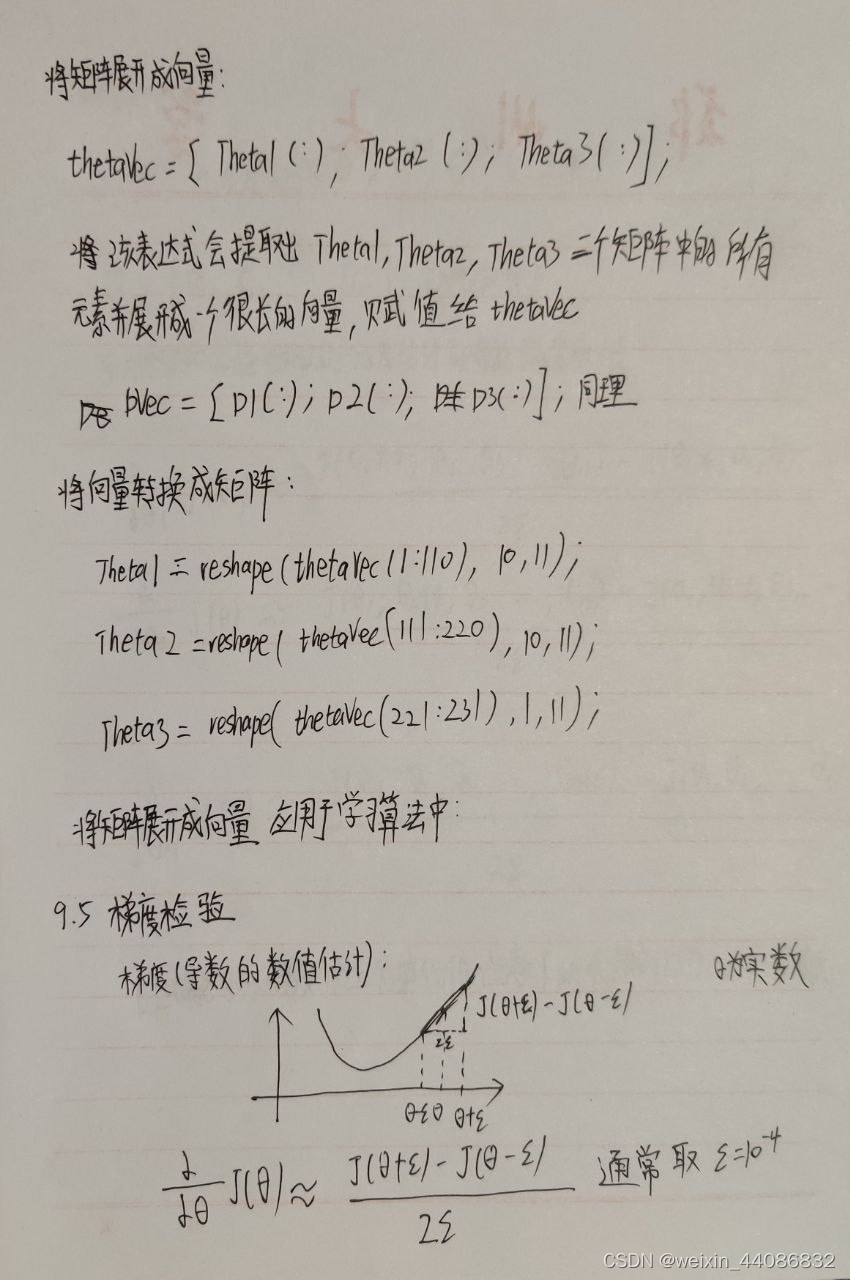 将矩阵展开成向量:
thetaVec = [ Theta1 (:); Theta2 (:); Theta3(:)];
将该表达式会提取出 Theta1, Theta2, Theta3 三个矩阵中的所有
元素并展开成一个很长的向量, 赋值给 thetaVec
DVec = [ D1(:); D2(:); D3(:)]; 同理
将向量转换成矩阵:
Theta1 = reshape(thetaVec(1:110), 10,11);
Theta2 = reshape( thetaVec(111:220), 10,11);
Theta3 = reshape( thetaVec(221:231), 1,11);
将矩阵展开成向量 应用于学习算法中:
9.5 梯度检验
梯度(导数的数值估计): θ为实数
J(θ+ε)-J(θ-ε)
2ε
θ-ε θ θ+ε
d/dθ J(θ) ≈ J(θ+ε)-J(θ-ε) / 2ε 通常取 ε=10⁻⁴
CSDN @weixin_44086832